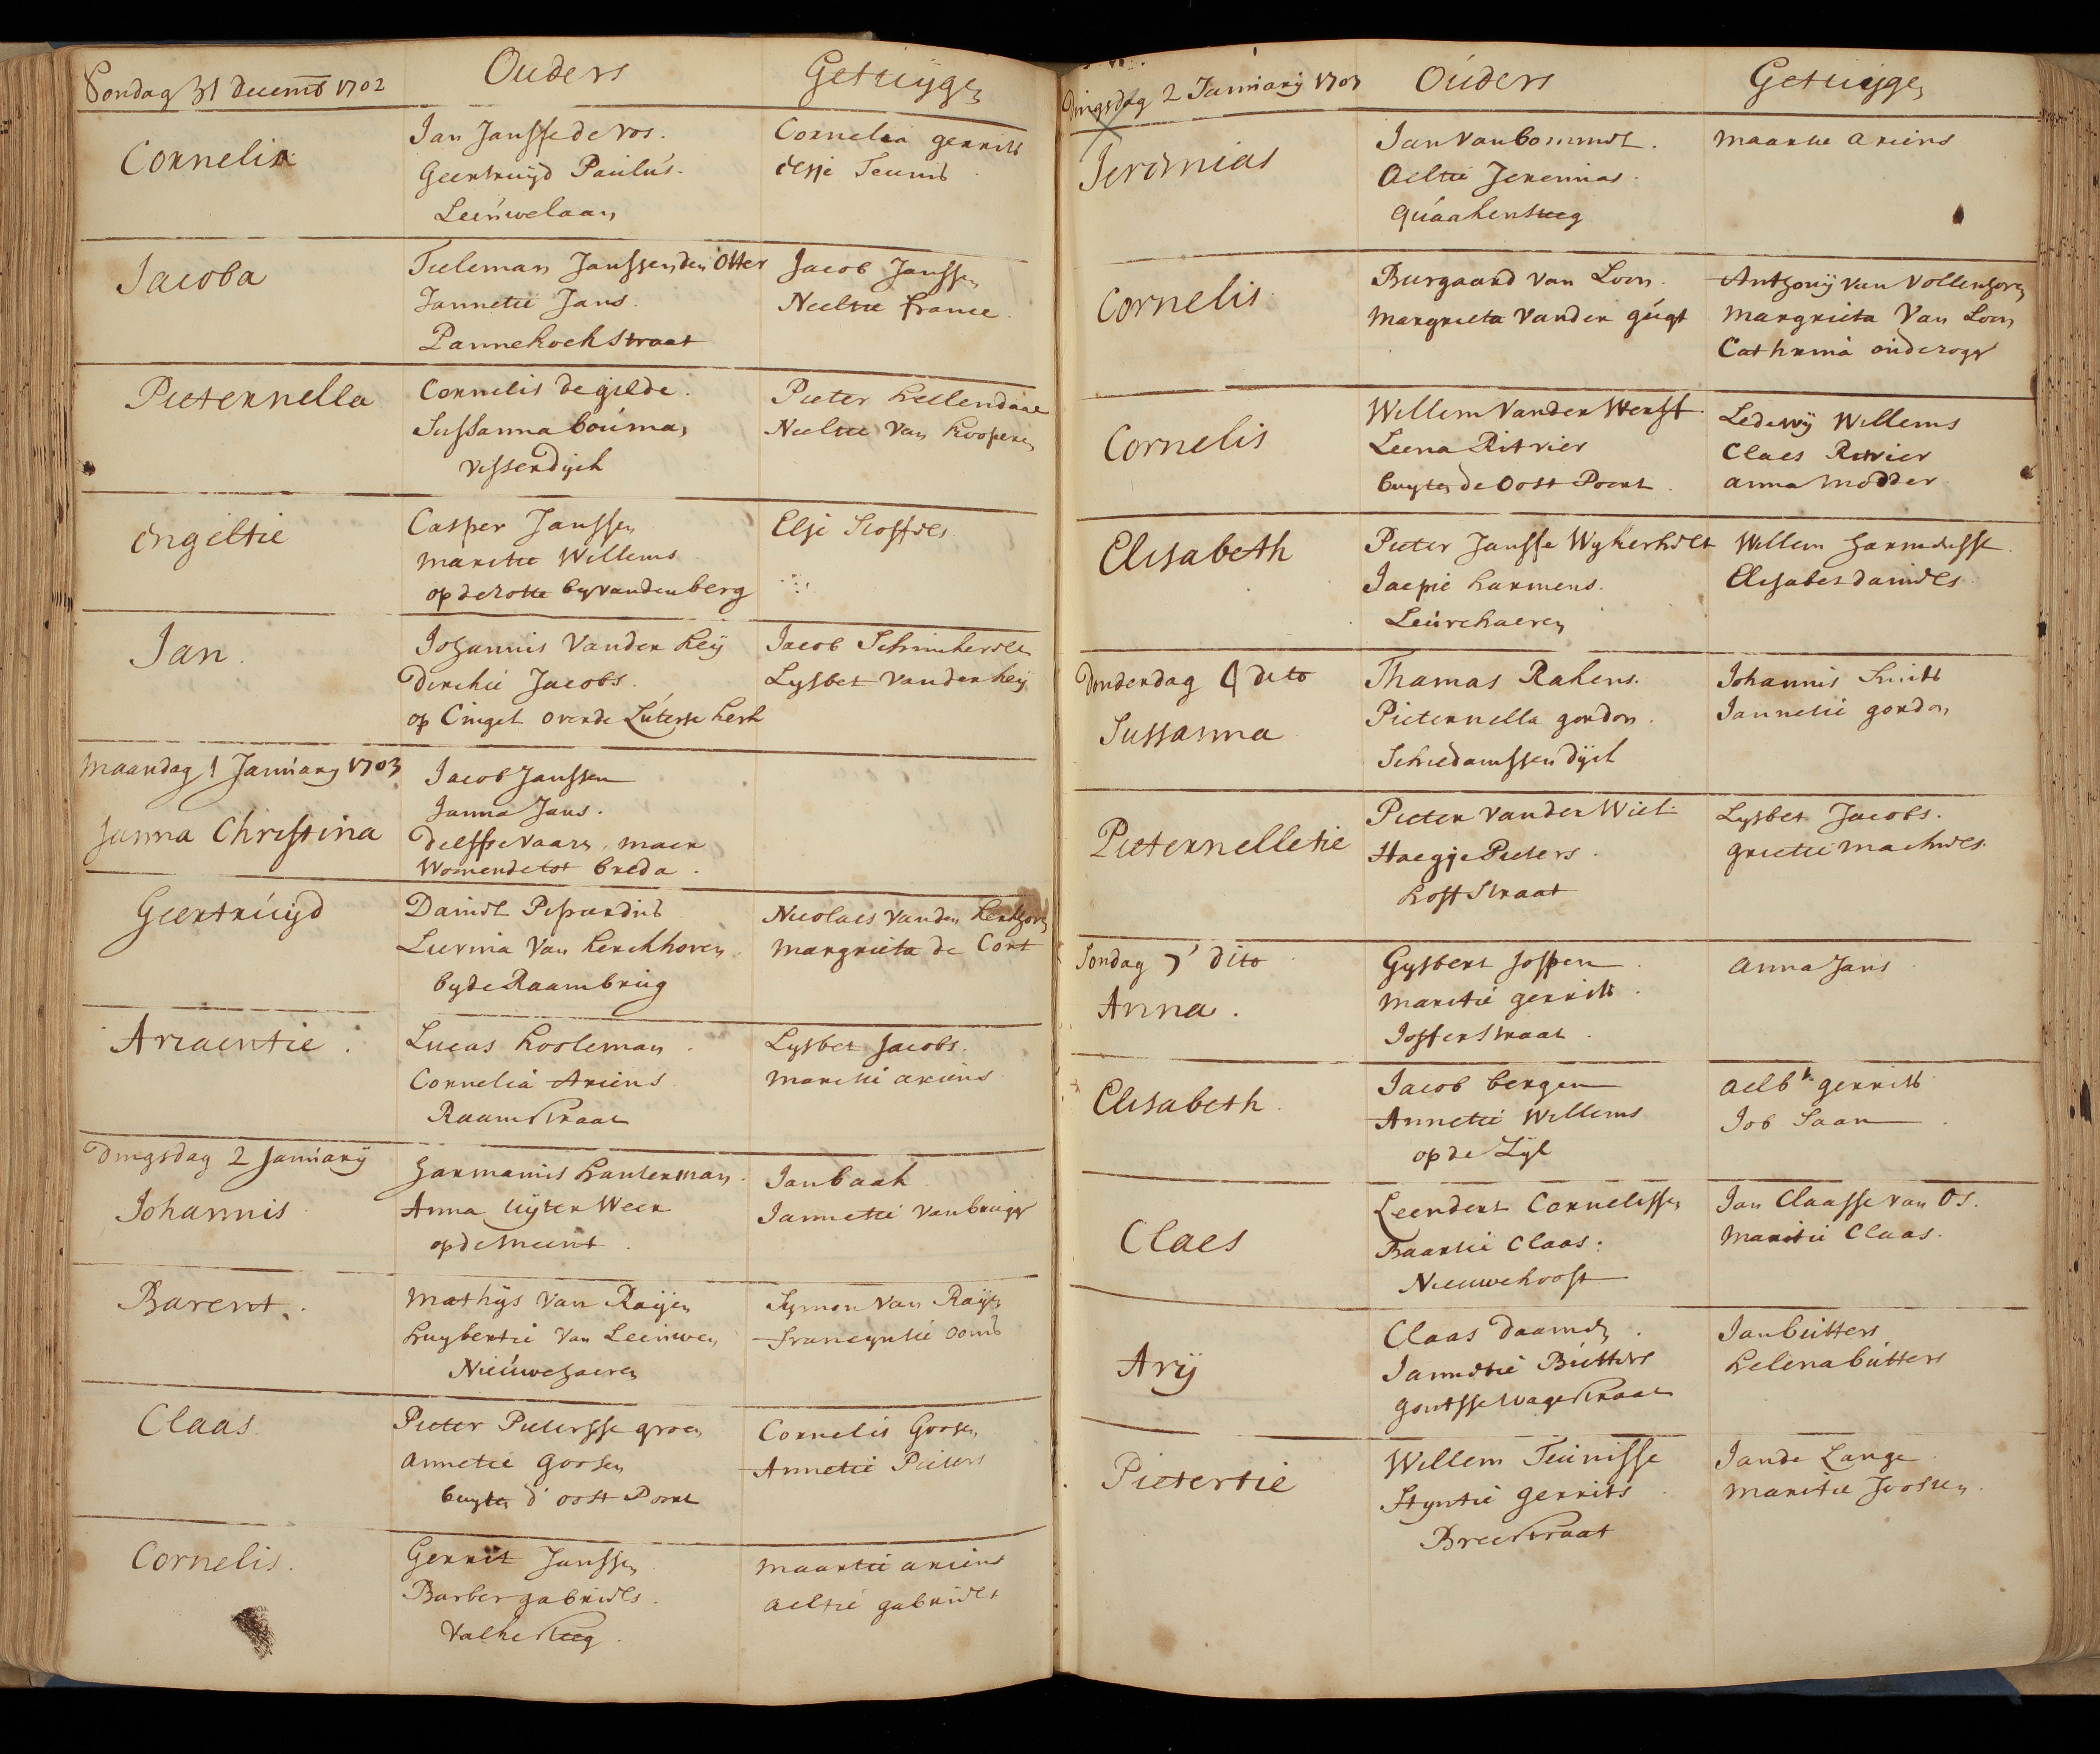 Sondag 31 Decemb 1702
Ouders
Getuÿgen
Cornelia
Jan Jansse de Vos.
Geertruijd Paulus.
Leeuwelaan
Cornelia gerrits
Elsje Teunis
Jacoba
Tieleman Janssen den Otter
Jannetie Jans.
Pannekoekstraat
Jacob Janssen
Neeltie France.
Pieternella
Cornelis de gilde.
Sussanna Bouman
Vissersdijck
Pieter
Neeltie Van
Engeltie
Casper Janssen
Maritie Willems
op de Rotte by vanden berg
Elsje Stoffels
Jan.
Johannis Vander Heij
Dirckie Jacobs.
op Cingel over de Luterse kerk
Jacob
Lysbet vander heij
Maandag 1 January 1703
Janna Christina
Jacob Janssen
Janna Jans.
Delfsse Vaart, maer
Woonende tot Breda.
Geertruijd
Daniel
Van Kerckhoven
by de Raambrug
Nicolaes vanden Kerkhoven
Margrieta de Cort
Ariaentie.
Lucas Kooleman.
Cornelia Ariens
Raamstraat
Lysbet Jacobs.
Maritie ariens
Dingsdag 2 Januarij
Johannis
Harmanis
Anna Uijter Weer
op de Meent.
Jan baak
Jannetie van brugge
Barent.
Mathijs Van Raijen
Huijbertie Van Leeuwen
Nieuwehaven
Symon Van Raijen
Francyntie ooms
Claas.
Pieter Pietersse groen
Annetie Goosen
buyten d'oost Poort
Cornelis Goosen
Annetie Pieters
Cornelis.
Gerrit Janssen
Barber gabriels.
Valkesteeg.
Maartie ariens
Aeltie gabriels
Dingsdag 2 Januarij 1703
Ouders
Getuijgen
Jeremias
Jan van bommel.
Aeltie Jeremias.
Quaakensteeg
Maartie Ariens
Cornelis
Burgaard Van Loon.
Margrieta Vander gúgt
Anthonij van Vollenhoven
Margrieta Van Loon
Cathrina
Cornelis
Willem Vander Werff.
Leena Ritvier
buyten de Oost Poort.
Ledewij Willems
Claes Ritvier
Anna Modder
Elisabeth
Pieter Jansse Wykerhelt
Jaepie Harmens.
Leuvehaven
Willem Harmensse.
Elisabet daniels
Donderdag 4 dito
Sussanna
Thomas Rakens.
Pieternella gordon.
Schiedamssen dijck
Johannis Smits
Jannetie gordon
Pieternelletie
Pieter vander Wiel.
Haegje Pieters.
Hoffstraat
Lysbet Jacobs.
Grietie Machiels.
Sondag 7 dito
Anna.
Gysbert Joppen.
Maritie gerrits.
Jofferstraat.
Anna Jans
Elisabeth.
Jacob bergen
Annetie Willems
op de Zijl
Aelbt gerrits
Job Saan
Claes
Leendert Cornelissen
Baartie Claas.
Nieuwehooft
Jan Claasse van Os.
Maritie Claas.
Arij
Claas Daamen.
Jannetie Butters
Goutsse wagestraat
Jan butters
Helena butters
Pietertie
Willem Teunisse
Styntie Gerrits.
Breestraat
Jan de Lange
Maritie Joosten.